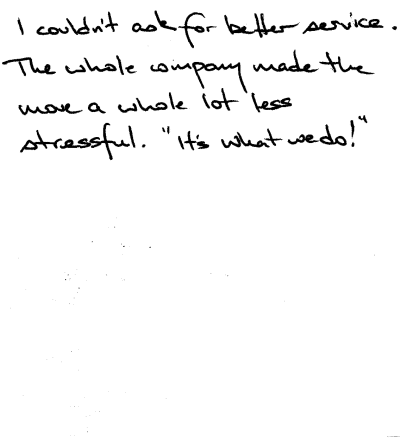 I couldn't ask for better service.
The whole company made the
move a whole lot less
stressful. "It's what we do!"